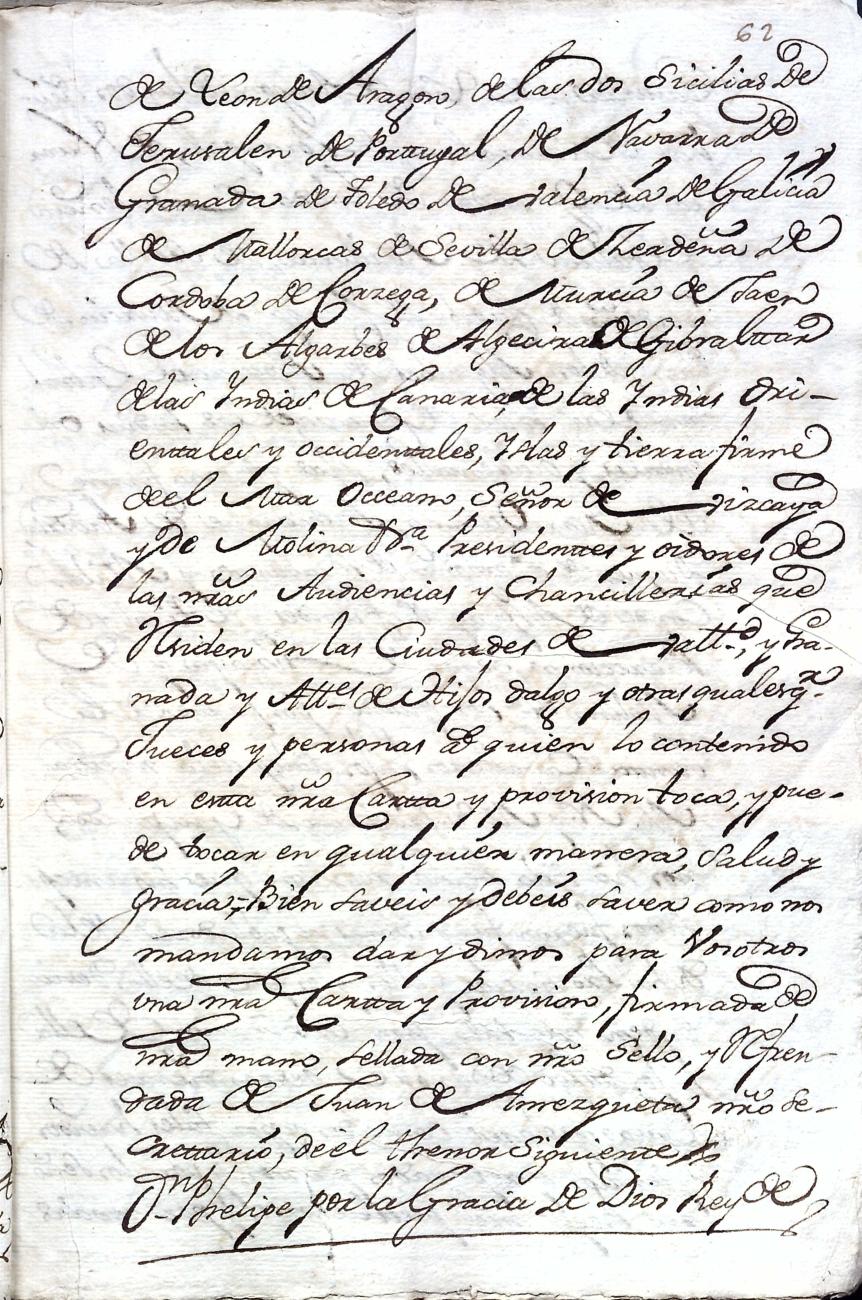 62
de Leon de Aragon, de las dos Sicilias de
Jerusalen de Porttugal, de Navarra de
Granada de Toledo de Valencia de Galicia
de Mallorcas de Sevilla de Zerdeña de
Cordoba de Corzega, de Murcia de Jaen
de los Algarbes de Algecira de Gibralttar
de las Yndias de Canaria, de las Yndias Ori-
enttales y occidenttales, Yslas y tierra firme
de el Mar Occeano, Señor de Vizcaya
y de Molina &ª Presidenttes y oidores de
las nrãs Audiencias y Chancillerias que
Residen en las Ciudades de Vallᵈ, y Gra-
nada y Allᵉˢ de Hijos dalgo y otras qualesqʳ
Jueces y personas a quien lo contenido
en estta nrã Cartta y provision toca, y pue-
de tocar en qualquier manera, Salud y
gracia; Bien saveis y debeis saver como nos
mandamos dar y dimos para Vosotros
una nrã Cartta y Provision, firmada de
nrã mano, sellada con nrõ Sello, y Refren-
dada de Juan de Amezquetta nrõ Se-
crettario, de el thenor Siguientte
Dⁿ Phelipe por la Gracia de Dios Rey de